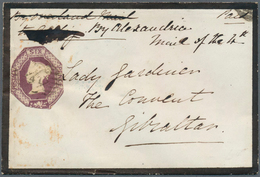 Paid
By Alexandria
Mail of the 4th
Lady Gardiner
The Convent
Gibraltar